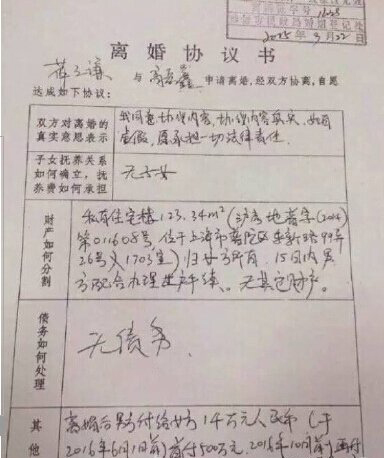 离婚协议书
与 申请离婚,经双方协商,自愿
达成如下协议:
双方对离婚的
真实意思表示
我同意协议内容,协议内容真实,如有
虚假,愿承担一切法律责任.
子女抚养关系
如何确立,抚
养费如何承担
无子女
财产如何分割
私有住宅楼123.34m²(沪房地普字(2014)
第011608号,位于上海市普陀区 99弄
26号 1703室)归女方所有,15日内男
方配合办理过户手续、无其它财产。
债务如何处理
无债务.
其他
离婚后男方付给女方1千万元人民币(于
2016年6月1日前首付500万元,2016年10月前再付